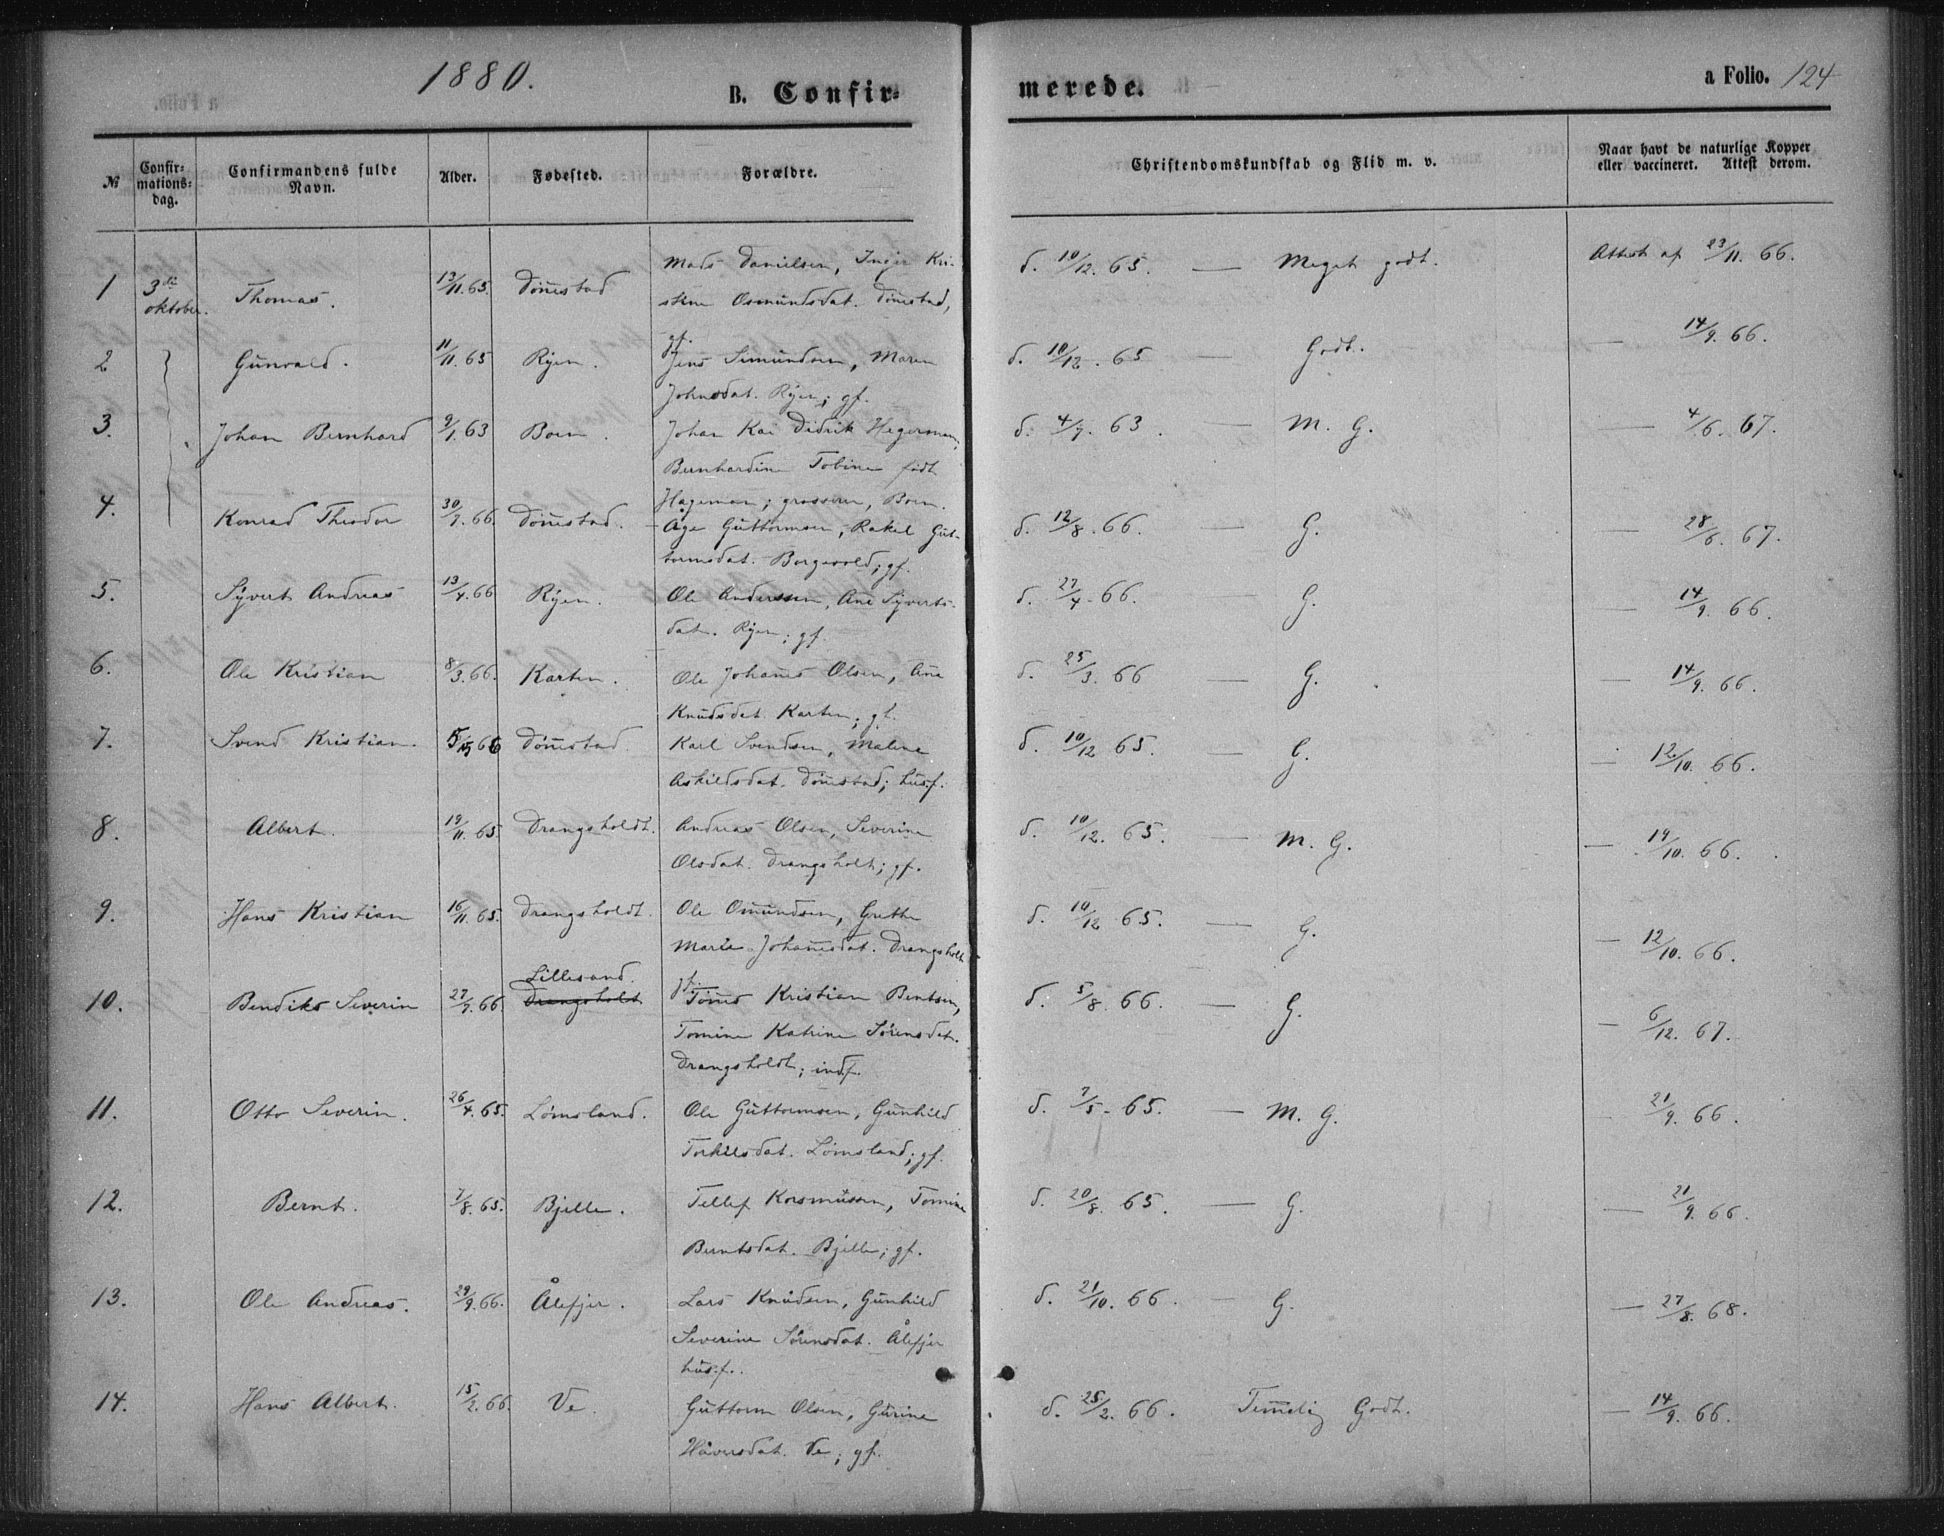 1880.
B. Confir-
merede.
a Folio. 124
№
Confir-
mations-
dag.
Confirmandens fulde
Navn.
Alder.
Fødested.
Forældre.
Christendomskundskab og Flid m. v.
Naar havt de naturlige Kopper
eller vaccineret. Attest derom.
1 3die oktober. Thomas. 13/11.65. Dønnestad
Mads Danielsen, Inger Kri-
stine Osmundsdat. Dønnestad,
gf.
d. 10/12. 65. — Meget godt. Attest af 23/11. 66.
2 Gunvald. 11/11.65 Ryen.
Jens Simundsen, Maren
Johnsdat. Ryen; gf.
d. 10/12. 65 — Godt. — 14/9. 66.
3. Johan Bernhard 9/1.63 Boen.
Johan Kai Didrik Hegerman,
Bernhardine Tobine født
Hageman; grosserer, Boen.
d. 4/7. 63. — M. G. — 4/6. 67.
4. Konrad Theodor 30/7.66. Dønnestad.
Åge Guttormsen, Rakel Gut-
tormsdat. Borgevold; gf.
d. 12/8. 66. — G. — 28/6. 67.
5. Syvert Andreas 13/4.66 Ryen.
Ole Anderssen, Ane Syverts-
dat. Ryen; gf.
d. 22/4. 66. — G. — 14/9. 66.
6. Ole Kristian 8/3.66. Karten.
Ole Johannes Olsen, Ane
Knudsdat. Karten; gf.
d. 25/3. 66 — G. — 14/9. 66.
7. Svend Kristian. Dønnestad.
Karl Svendsen, Malene
Askildsdat. Dønnestad; husf.
d. 10/12 65. — G. — 12/10. 66.
8. Albert. 19/11.65 Drangsholdt.
Andreas Olsen, Severine
Olsdat. Drangsholt; gf.
d. 10/12. 65. — M. G. — 19/10. 66.
9. Hans Kristian 16/11.65. Drangsholdt.
Ole Omundsen, Grethe
Marie Johannesdat. Drangsholt
gf.
d. 10/12 65. — G. — 12/10. 66.
10. Bendiks Severin 27/7.66. Lillesand. Drangsholdt
Tønnes Kristian Bentsen,
Tomine Katrine Sørensdat.
Drangsholdt; indf.
d. 5/8. 66. — G. — 6/12. 67.
11. Otto Severin. 26/4.65. Lømsland.
Ole Guttormsen, Gunhild
Torkilsdat. Lømsland; gf.
d. 7/5. 65. — M. G. — 21/9. 66.
12. Bernt. 7/8.65. Bjelle.
Tellef Korsmussen, Tomine
Berntsdat. Bjelle; gf.
d. 20/8. 65. — G. — 21/9. 66.
13. Ole Andreas. 29/9.66. Ålefjer.
Lars Knudsen, Gunhild
Severine Sørensdat. Ålefjer
husf.
d. 21/10. 66. — G. — 27/8. 68.
14. Hans Albert. 15/2.66. Ve.
Guttorm Olsen, Gurine
Håversdat. Ve; gf.
d. 25/2. 66. Temmelig Godt. — 14/9. 66.